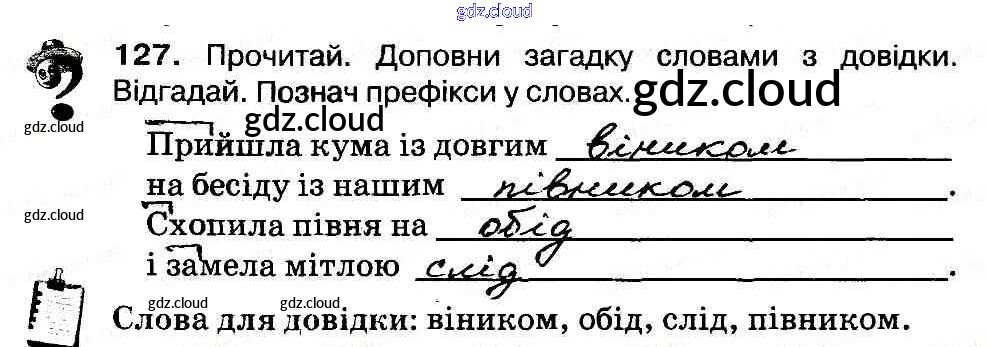 gdz.cloud
127. Прочитай. Доповни загадку словами з довідки.
Відгадай. Познач префікси у словах. gdz.cloud
gdz.cloud gdz.cloud
Прийшла кума із довгим віником
на бесіду із нашим півником.
gdz.cloud
Схопила півня на обід
і замела мітлою слід.
gdz.cloud gdz.cloud gdz.cloud
Слова для довідки: віником, обід, слід, півником.